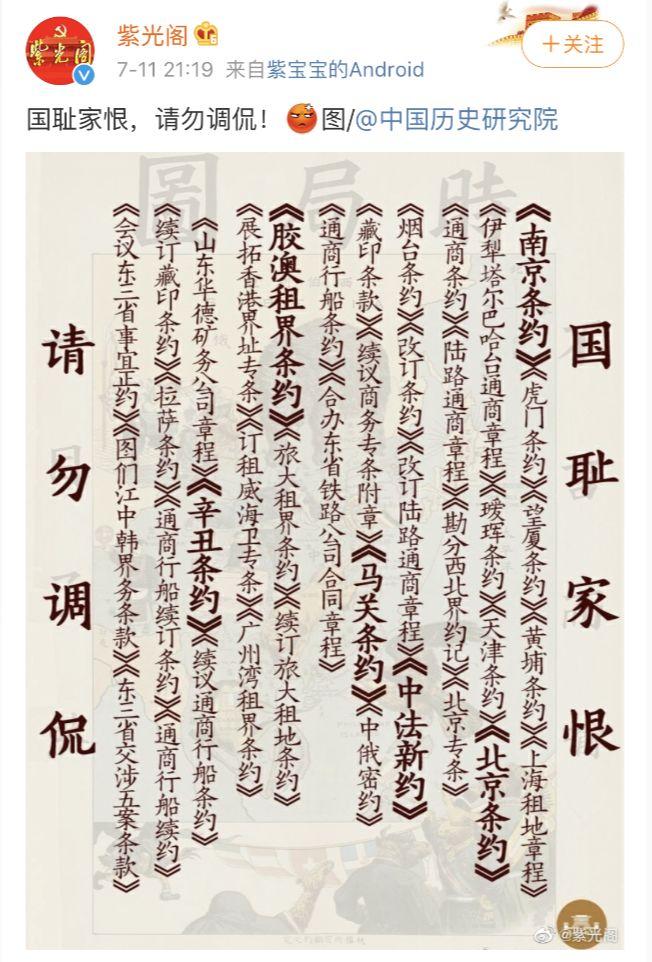 紫光阁
紫光阁
7-11 21:19 来自紫宝宝的Android
+关注
国耻家恨，请勿调侃！图/@中国历史研究院
時局圖
国耻家恨
《南京条约》《虎门条约》《望厦条约》《黄埔条约》《上海租地章程》
《伊犁塔尔巴哈台通商章程》《瑷珲条约》《天津条约》《北京条约》
《通商条约》《陆路通商章程》《勘分西北界约记》《北京专条》
《烟台条约》《改订条约》《改订陆路通商章程》《中法新约》
《藏印条款》《续议商务专条附章》《马关条约》《中俄密约》
《通商行船条约》《合办东省铁路公司合同章程》
《胶澳租界条约》《旅大租界条约》《续订旅大租地条约》
《展拓香港界址专条》《订租威海卫专条》《广州湾租界条约》
《山东华德矿务公司章程》《辛丑条约》《续议通商行船条约》
《续订藏印条约》《拉萨条约》《通商行船续订条约》《通商行船续约》
《会议东三省事宜正约》《图们江中韩界务条款》《东三省交涉五案条款》
请勿调侃
@紫光阁